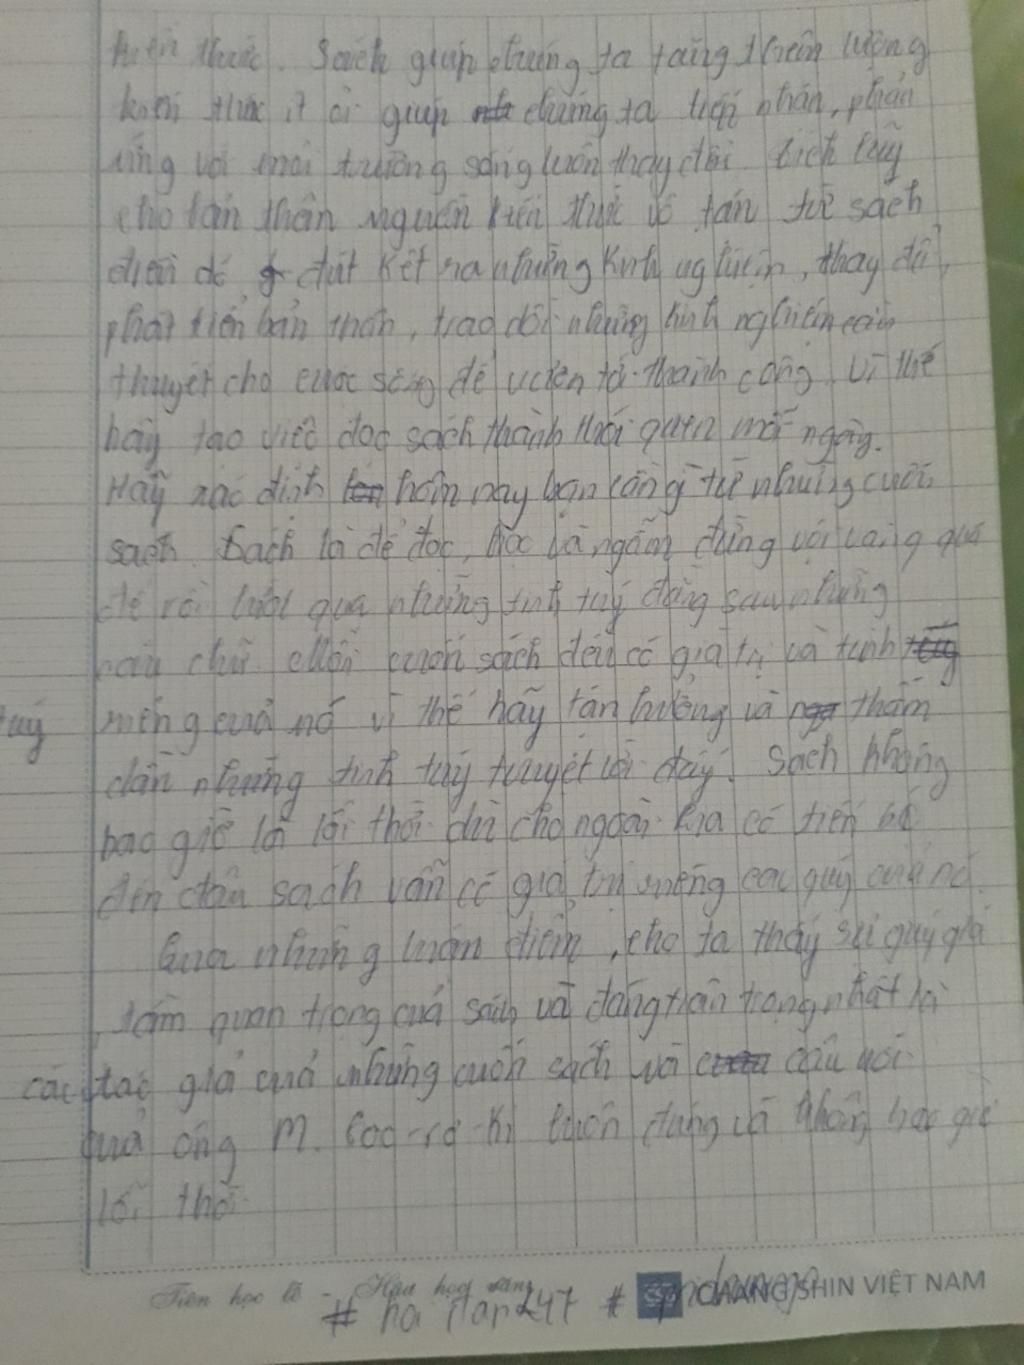 kiến thức. Sách giúp chúng ta tăng thêm lượng
kiến thức ít ỏi giúp chúng ta tiếp nhận, phản
ứng với môi trường sống luôn thay đổi. tích lũy
cho bản thân nguồn kiến thức vô tận từ sách
để đút kết ra những kinh nghiệm, thay đổi,
phát triển bản thân, trao dồi những kinh nghiệm cần
thuyết cho cuộc sống để vươn tới thành công. Vì thế
hãy tạo việc đọc sách thành thói quen mỗi ngày.
Hãy xác định hôm nay bạn cần gì từ những cuốn
sách. Sách là để đọc, đọc và ngẫm đừng vội vàng quá
để rồi lướt qua những tinh túy đằng sau những
con chữ. Mỗi cuốn sách đều có giá trị và tinh
túy riêng của nó vì thế hãy tận hưởng và thấm
dần những tinh túy tuyệt vời đấy. Sách không
bao giờ là lỗi thời dù cho ngoài kia có tiến bộ
đến đâu sách vẫn có giá trị riêng cao quý của nó.
Qua những luận điểm, cho ta thấy sự quý giá
, tầm quan trọng của sách và đáng trân trọng nhất là
các tác giả của những cuốn sách và câu nói
của ông M. Goo-rơ-ki luôn đúng và không bao giờ
lỗi thời
Tiên học lễ - Hậu học văn
CHANG SHIN VIỆT NAM